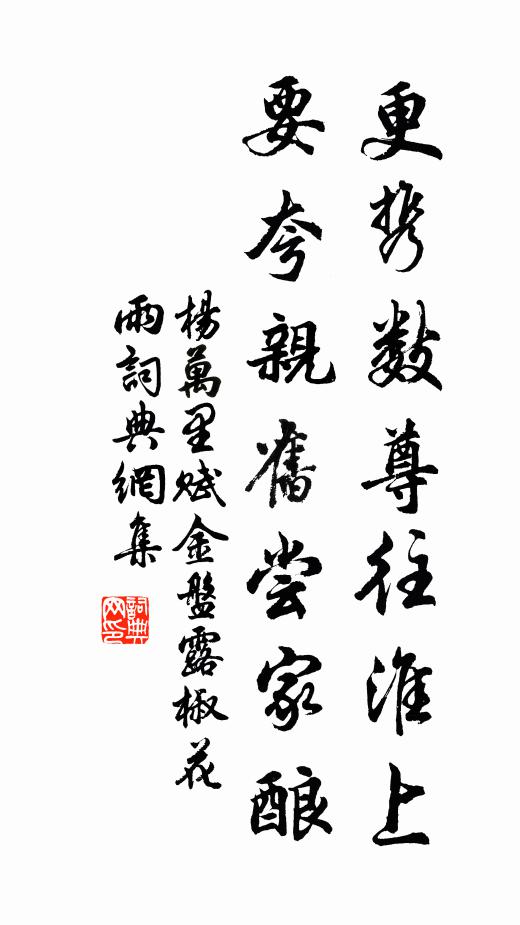 更携数尊往淮上
要夸親舊尝家酿
楊萬里賦金盤露椒花
雨詞典網集
詞典网印